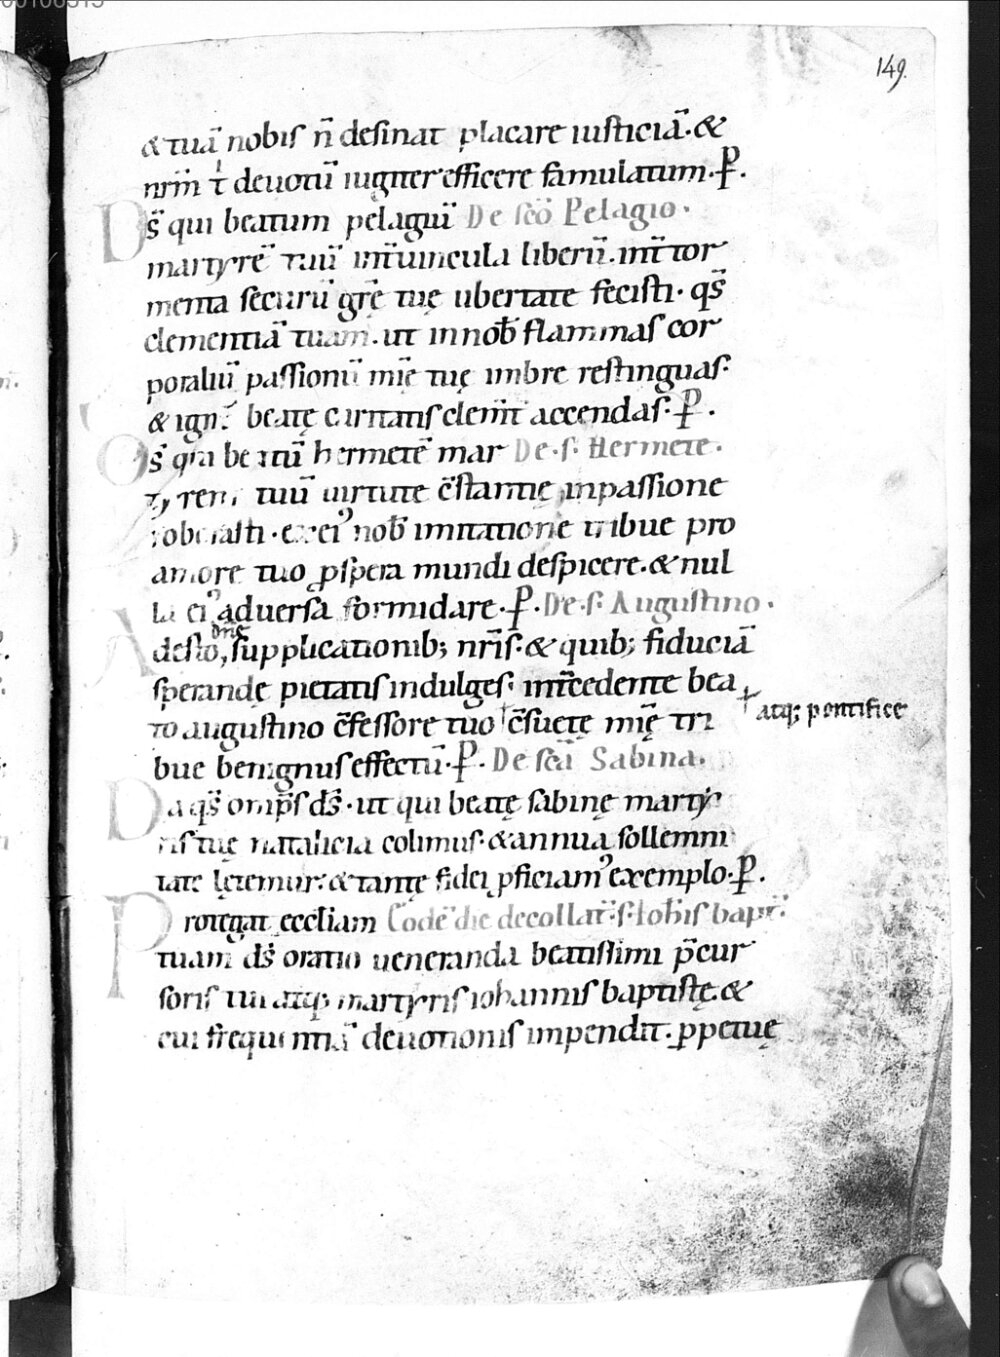 149.
& tuā nobis n̄ desinat placare iusticiā. &
nr̄m t̄ deuotū iugiter efficere famulatum. P̄.
Ds̄ qui beatum pelagiū De sc̄o Pelagio.
martyrē tuū int̄ uincula liberū. int̄ tor
menta securū grę̄ tuę ubertate fecisti. qs̄
clementiā tuam. ut in nob̄ flammas cor
poraliū passionū mię̄ tuę imbre restinguas.
& ign beatę caritatis clem̄t accendas. P̄.
Ds̄ qui beatū hermetē mar De. s. Hermete.
tyrem tuū uirtute c̄stantię in passione
roborasti. ex ei' nob̄ imitatione tribue pro
amore tuo ꝓspera mundi despicere. & nul
la ei' aduersa formidare. P̄. De. s. Augustino.
Adesto, dn̄e supplicationib; nr̄is. & quib; fiduciā
sperandę pietatis indulges. int̄cedente bea
to augustino c̄fessore tuo c̄suetę mię̄ tri
atq; pontifice
bue benignus effectū. P̄. De sc̄a Sabina.
Da qs̄ omp̄s ds̄. ut qui beatę sabinę marty
ris tuę natalicia colimus. & annua sollemni
tate lętemur. & tantę fidei ꝓficiam' exemplo. P̄.
Protegat eccliam Eode die decollat̄. s. Ioh̄is bapt̄.
tuam ds̄ oratio ueneranda beatissimi p̄cur
soris tui atq; martyris iohannis baptistę. &
cui frequentiā deuotionis impendit. ꝑpetuę